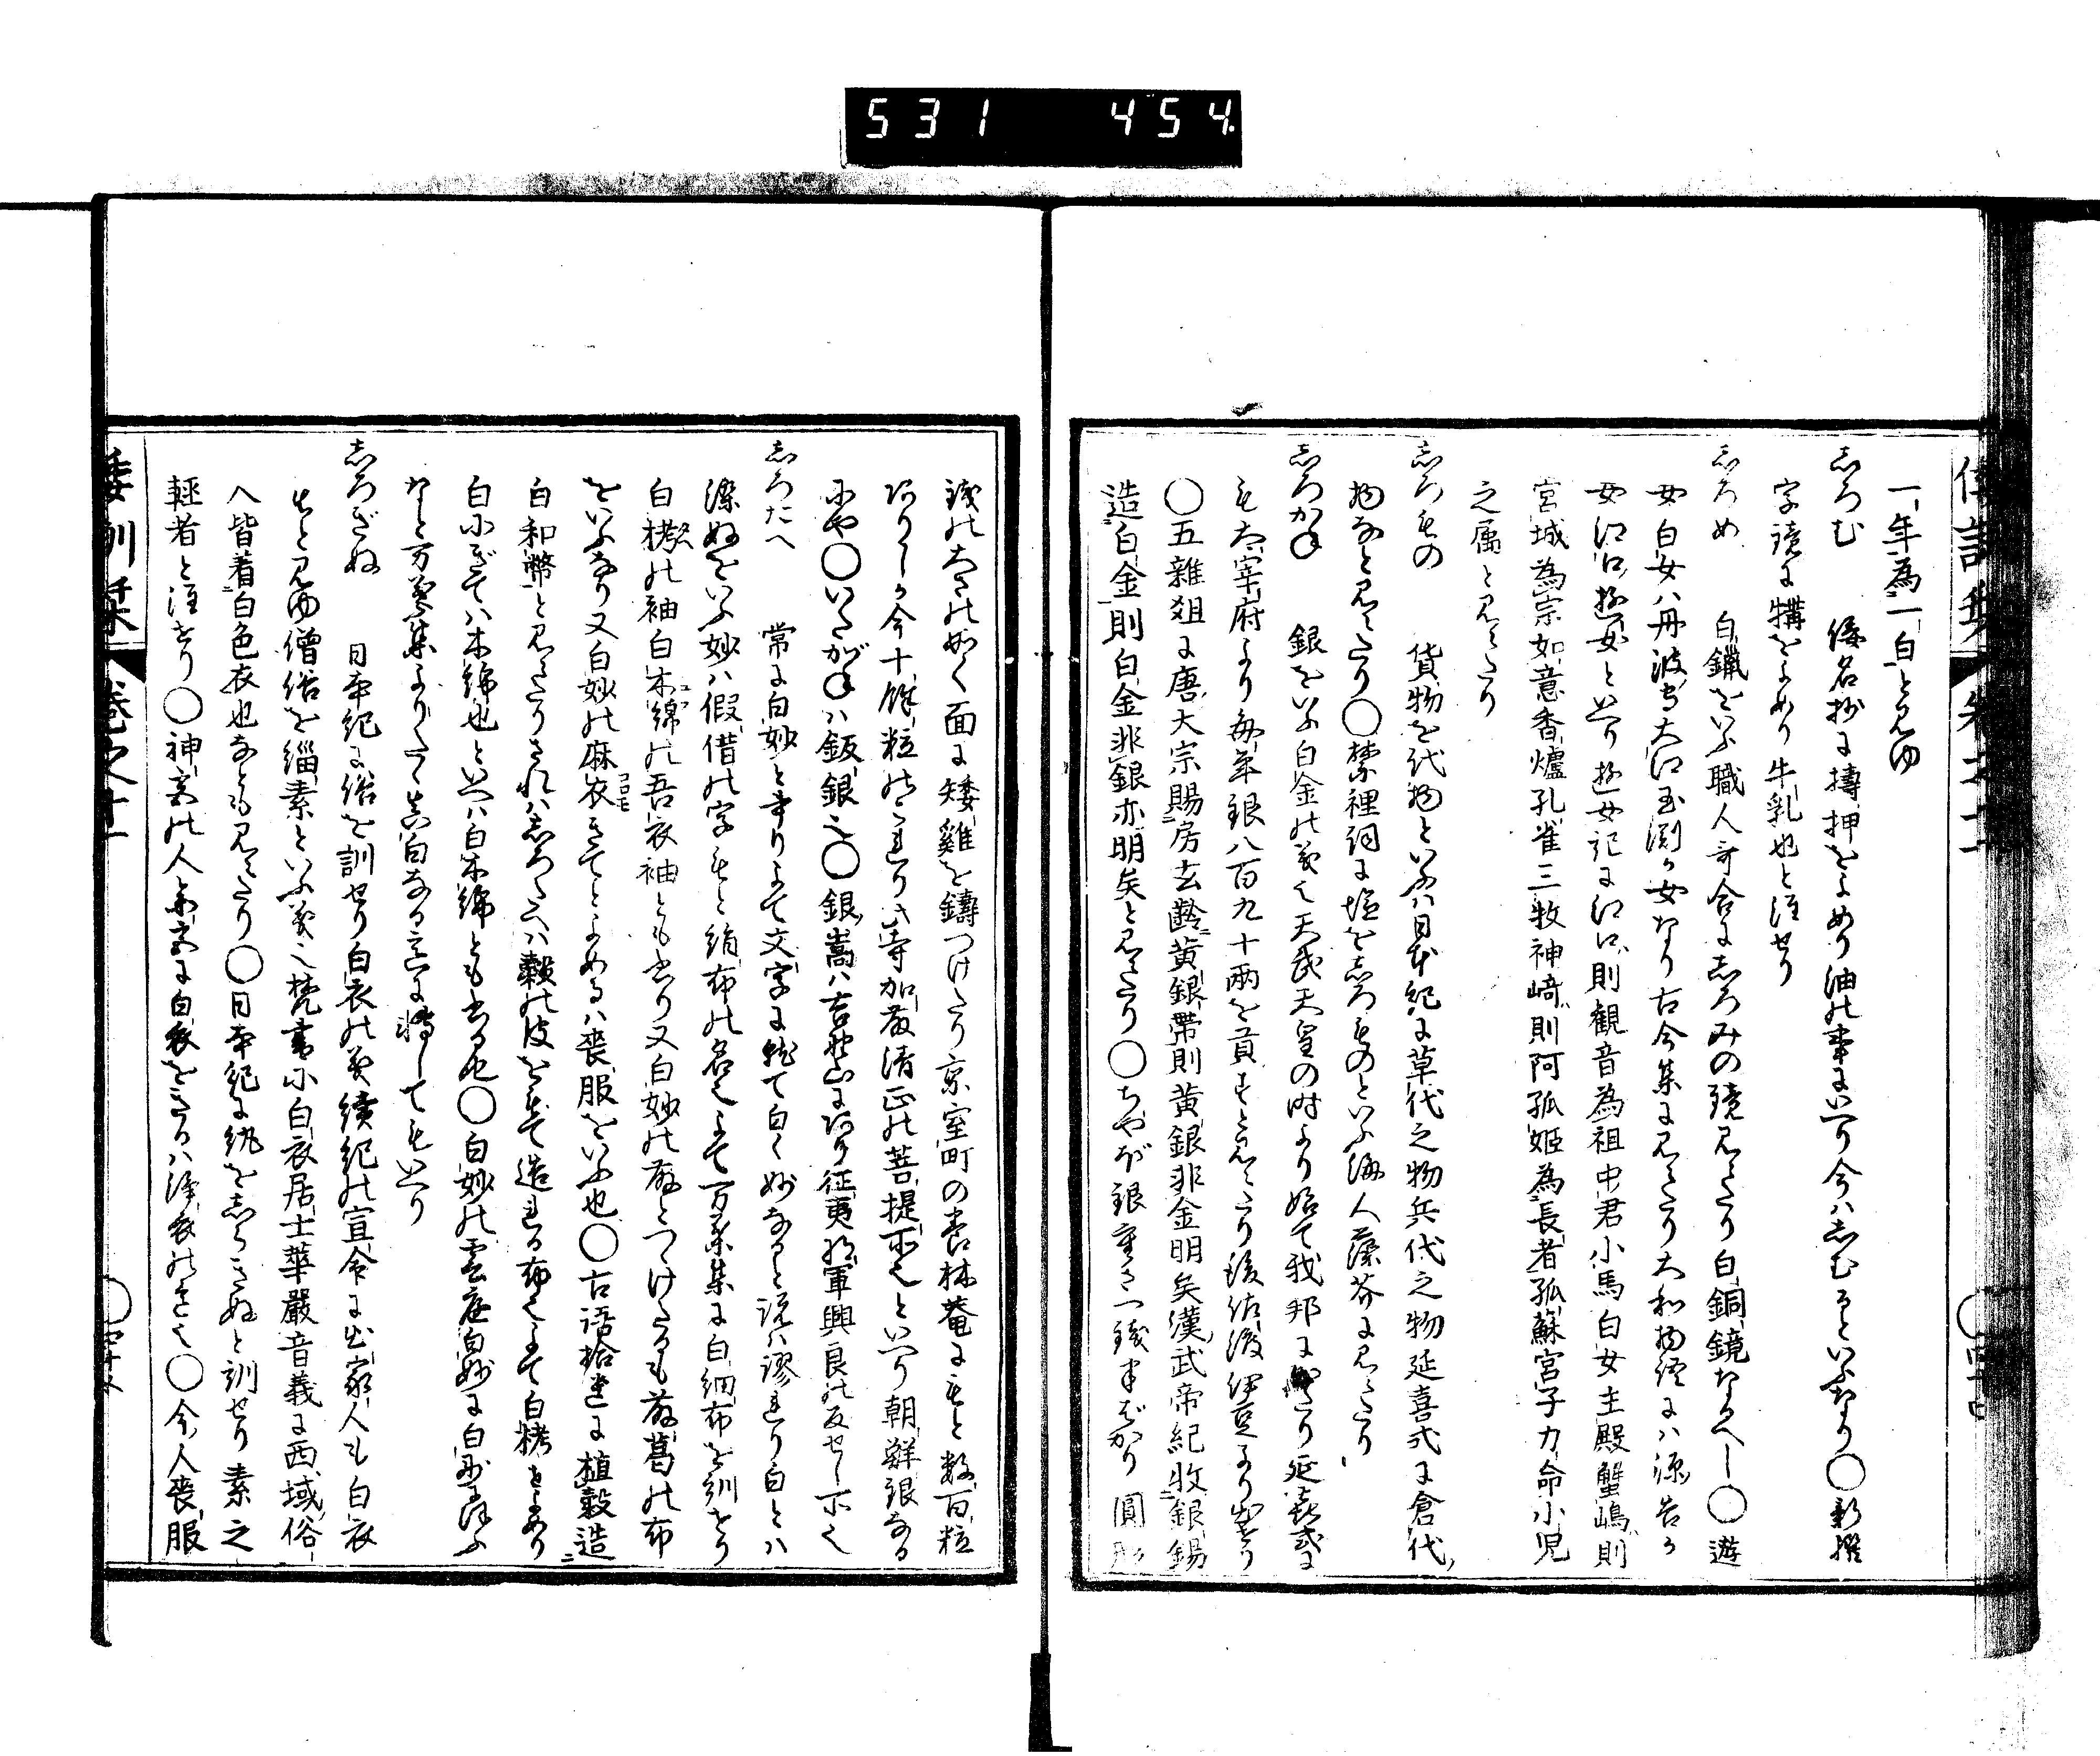 531 454.
一年為一白と見ゆ
志ろむ 倭名抄に搏押をよめり油の事にいへり今ハ志むるといふなり〇新撰
字鏡に犕をよめり牛乳也と注せり
志ろめ 白鑞をいふ職人哥合に志ろみの鏡見えたり白銅鏡なるへし〇遊
女白女ハ丹波守大江玉渕か女なり古今集に見えたり大和物語にハ源告か
女江口遊女といへり遊女記に江口則観音為祖中君小馬白女主殿蟹嶋則
宮城為宗如意香爐孔雀三牧神﨑則阿孤姫為長者孤蘇宮子力命小児
之属と見えたり
志ろもの 貨物を代物といふハ日本紀に草代之物兵代之物延喜式に倉代
物なと見えたり〇禁裡詞に塩を志ろものといふ海人藻芥に見えたり
志ろかね 銀をいふ白金の義也天武天皇の時より始て我邦に出たり延喜式に
も太宰府より毎年銀八百九十兩を貢すと見えたり後佐渡伊豆より出せり
〇五雜爼に唐大宗賜房玄齡黄銀帶則黄銀非金明矣漢武帝紀收銀錫
造白金則白金非銀亦明矣と見えたり〇ちやぼ銀重さ一錢半ばかり圓形
錢の大さの如く面に矮雞を鑄つけたり京室町の養林菴にもと数百粒
ありしか今十餘粒のこれり此寺加藤清正の菩提所也といへり朝鮮銀なる
にや〇いたがねハ鈑銀也〇銀嵩ハ吉野山にあり征夷将軍興良の反せし所也
志ろたへ 常に白妙と書りよて文字に就て白く妙なると説ハ謬れり白とハ
染ぬをいふ妙ハ假借の字もと絹布の名也よて万葉集に白細布を訓せり
白栲の袖白木綿の吾衣袖とも書り又白妙の藤とつゝけたるも藤葛の布
をいふなり又白妙の麻衣きてとよめるハ喪服をいふ也〇古語拾遺に植穀造
白和幣と見えたりされハ志ろたへハ穀の皮をもて造れる布也よて白栲をよめり
白にぎてハ木綿也といへハ白木綿とも書る也〇白妙の雲庭白妙に白玉に降ふ
なと万葉集よりたゝ真白なる意に轉してもいへり
志ろぎぬ 日本紀に俗を訓せり白衣の義續紀の宣命に出家人も白衣
もと見ゆ僧俗を緇素といふ義也梵書に白衣居士華嚴音義に西域俗
人皆着白色衣也なとも見えたり〇日本紀に紈を志らきぬと訓せり素之
輕者と注せり〇神宮の人参宮に白衣をきるハ浄衣の遺也〇今人喪服
倭訓栞 卷之十一